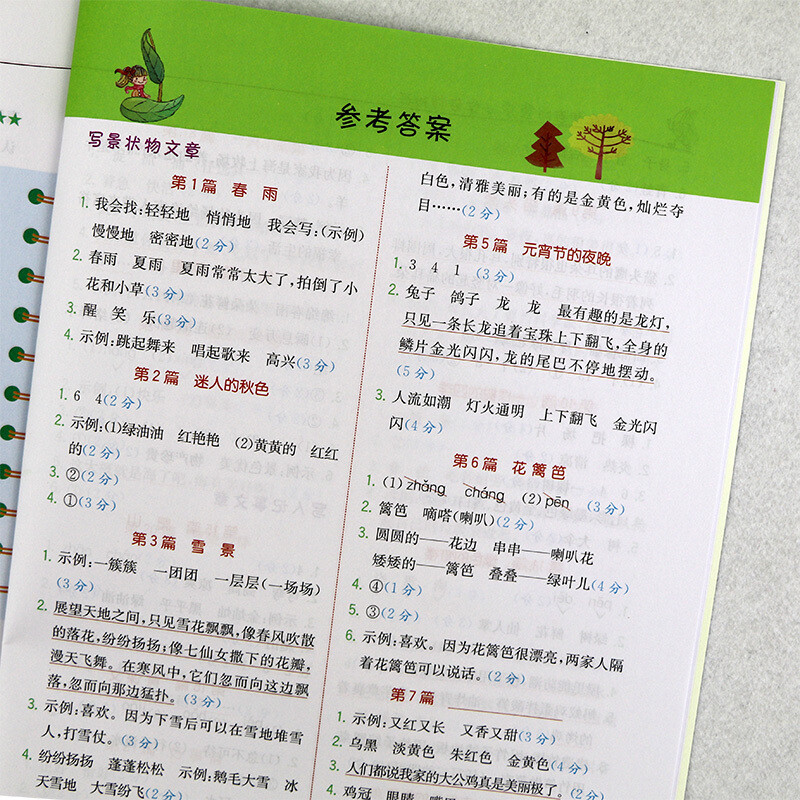 参考答案
写景状物文章
第1篇 春 雨
1. 我会找:轻轻地 悄悄地 我会写:(示例)
慢慢地 密密地(2分)
2. 春雨 夏雨 夏雨常常太大了,拍倒了小
花和小草(3分)
3. 醒 笑 乐(3分)
4. 示例:跳起舞来 唱起歌来 高兴(3分)
第2篇 迷人的秋色
1. 6 4(2分)
2. 示例:(1)绿油油 红艳艳 (2)黄黄的 红红
的(2分)
3. ②(2分)
4. ①(3分)
第3篇 雪 景
1. 示例:一簇簇 一团团 一层层(一场场)
(3分)
2. 展望天地之间,只见雪花飘飘,像春风吹散
的落花,纷纷扬扬;像七仙女撒下的花瓣,
漫天飞舞。在寒风中,它们忽而向这边飘
落,忽而向那边猛扑。(3分)
3. 示例:喜欢。因为下雪后可以在雪地堆雪
人,打雪仗。(3分)
4. 纷纷扬扬 蓬蓬松松 示例:鹅毛大雪 冰
天雪地 大雪纷飞(2分)
白色,清雅美丽;有的是金黄色,灿烂夺
目……(2分)
第5篇 元宵节的夜晚
1. 3 4 1 (3分)
2. 兔子 鸽子 龙 龙 最有趣的是龙灯,
只见一条长龙追着宝珠上下翻飞,全身的
鳞片金光闪闪,龙的尾巴不停地摆动。
(5分)
3. 人流如潮 灯火通明 上下翻飞 金光闪
闪(4分)
第6篇 花篱笆
1. (1)zhǎng cháng (2)pēn (3分)
2. 篱笆 嘀嗒(喇叭)(2分)
3. 圆圆的——花边 串串——喇叭花
矮矮的——篱笆 叠叠——绿叶儿(4分)
4. ④(1分)
5. ③(2分)
6. 示例:喜欢。因为花篱笆很漂亮,两家人隔
着花篱笆可以说话。(2分)
第7篇
1. 示例:又红又长 又香又甜(3分)
2. 乌黑 淡黄色 朱红色 金黄色(4分)
3. 人们都说我家的大公鸡真是美丽极了。(2分)
4. 鸡冠 眼睛